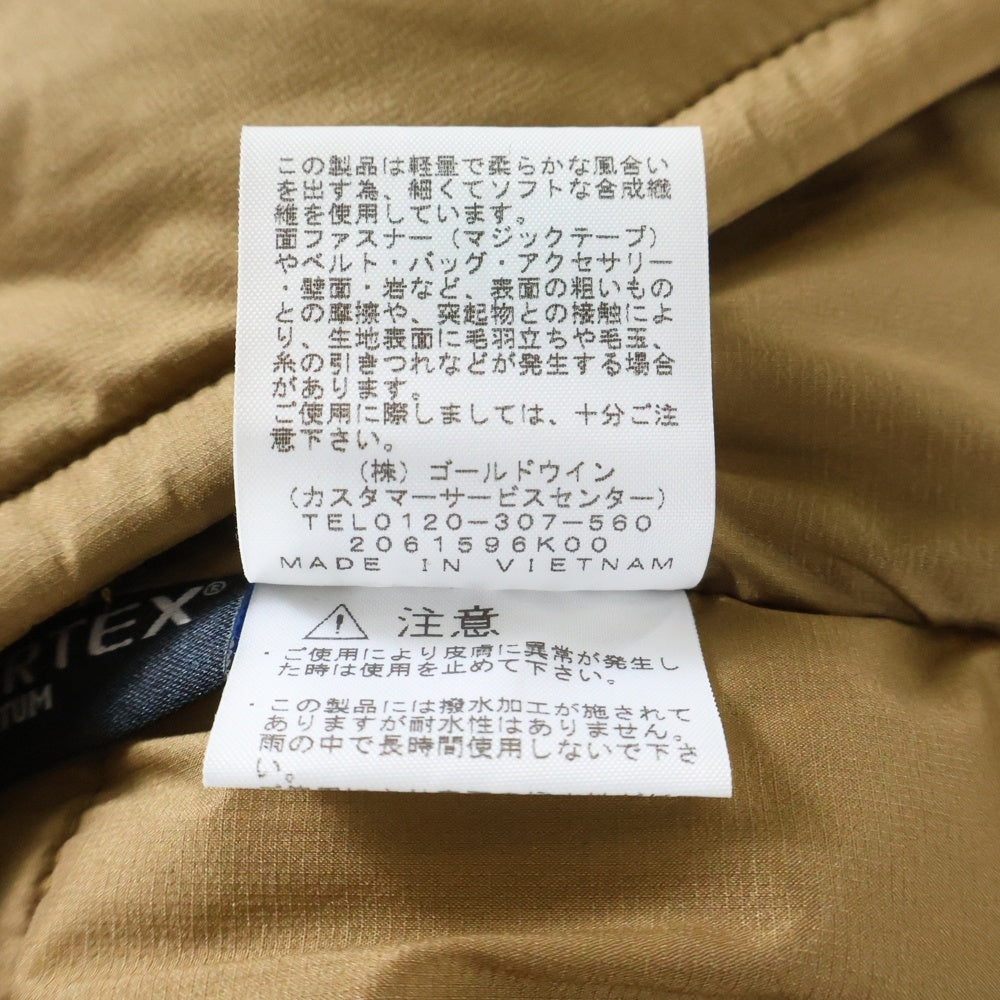 この製品は軽量で柔らかな風合い
を出す為、細くてソフトな合成繊
維を使用しています。
面ファスナー（マジックテープ）
やベルト・バッグ・アクセサリー
・壁面・岩など、表面の粗いもの
との摩擦や、突起物との接触によ
り、生地表面に毛羽立ちや毛玉、
糸の引きつれなどが発生する場合
があります。
ご使用に際しましては、十分ご注
意下さい。
（株）ゴールドウイン
（カスタマーサービスセンター）
TEL0120－307－560
2061596K00
MADE IN VIETNAM
RTEX®
TUM
注意
・ご使用により皮膚に異常が発生し
た時は使用を止めて下さい。
・この製品には撥水加工が施されて
ありますが耐水性はありません。
雨の中で長時間使用しないで下さ
い。